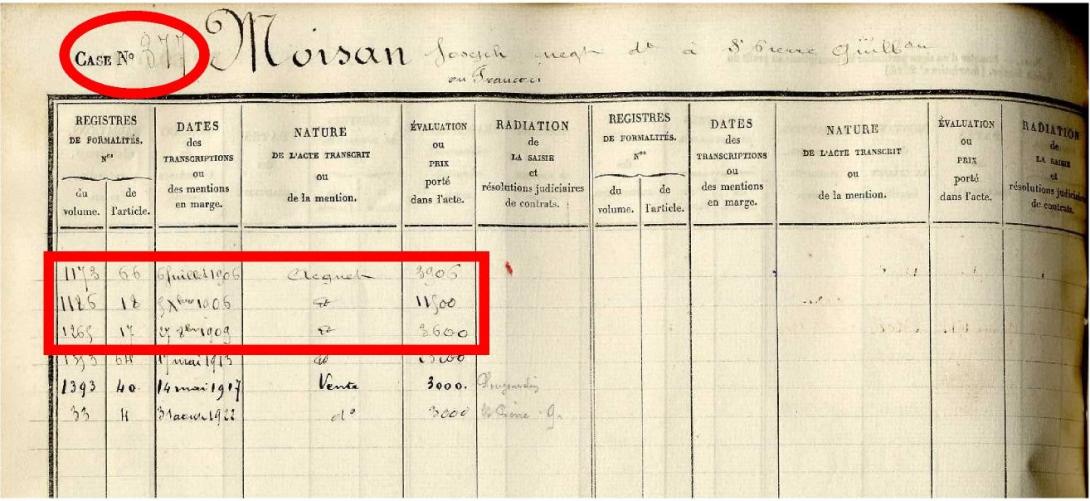 CASE No 377 Moisan Joseph negt dt à St Pierre Quilbon
ou Francois
REGISTRES DE FORMALITÉS. Nos
du volume.
de l'article.
DATES des TRANSCRIPTIONS ou des mentions en marge.
NATURE DE L'ACTE TRANSCRIT ou de la mention.
ÉVALUATION OU PRIX porté dans l'acte.
RADIATION de LA SAISIE et résolutions judiciaires de contrats.
REGISTRES DE FORMALITÉS. Nos
du volume.
de l'article.
DATES des TRANSCRIPTIONS ou des mentions en marge.
NATURE DE L'ACTE TRANSCRIT ou de la mention.
ÉVALUATION OU PRIX porté dans l'acte.
RADIATION de LA SAISIE et résolutions judiciaires de contrats.
1173 66 6 juillet 1906 Acquet 3906
1186 18 5 Xbre 1906 dt 11500
1265 17 27 8bre 1909 dt 3600
1393 40 14 mai 1917 Vente 3000.
33 4 31 aout 1922 do 3000